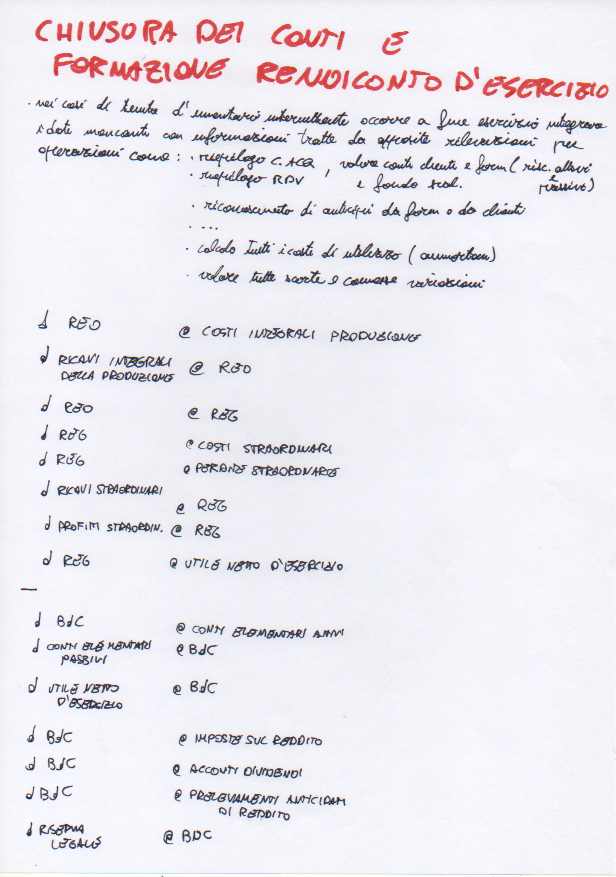 CHIUSURA DEI CONTI E
FORMAZIONE RENDICONTO D'ESERCIZIO
. nei casi di tenuta d'inventario intermittente occorre a fine esercizio integrare
i dati mancanti con informazioni tratte da apposite rilevazioni per
operazioni come : · riepilogo C.ACQ , valore conti clienti e forn ( risc. attivi
· riepilogo RDV e fondo sval. e passivi )
· riconoscimento di anticipi da forn o da clienti
· ...
· calcolo tutti i costi di utilizzo ( ammortam )
· valore tutte scorte e connesse variazioni
d REO @ COSTI INTEGRALI PRODUZIONE
d RICAVI INTEGRALI
DELLA PRODUZIONE @ REO
d REO @ REG
d REG @ COSTI STRAORDINARI
d REG @ PERDITE STRAORDINARIE
d RICAVI STRAORDINARI
@ REG
d PROFITTI STRAORDIN. @ REG
d REG @ UTILE NETTO D'ESERCIZIO
—
d BdC @ CONTI ELEMENTARI ATTIVI
d CONTI ELEMENTARI
PASSIVI @ BdC
d UTILE NETTO
D'ESERCIZIO @ BdC
d BdC @ IMPOSTE SUL REDDITO
d BdC @ ACCONTI DIVIDENDI
d BdC @ PRELEVAMENTI ANTICIPATI
DI REDDITO
d RISERVA
LEGALE @ BDC